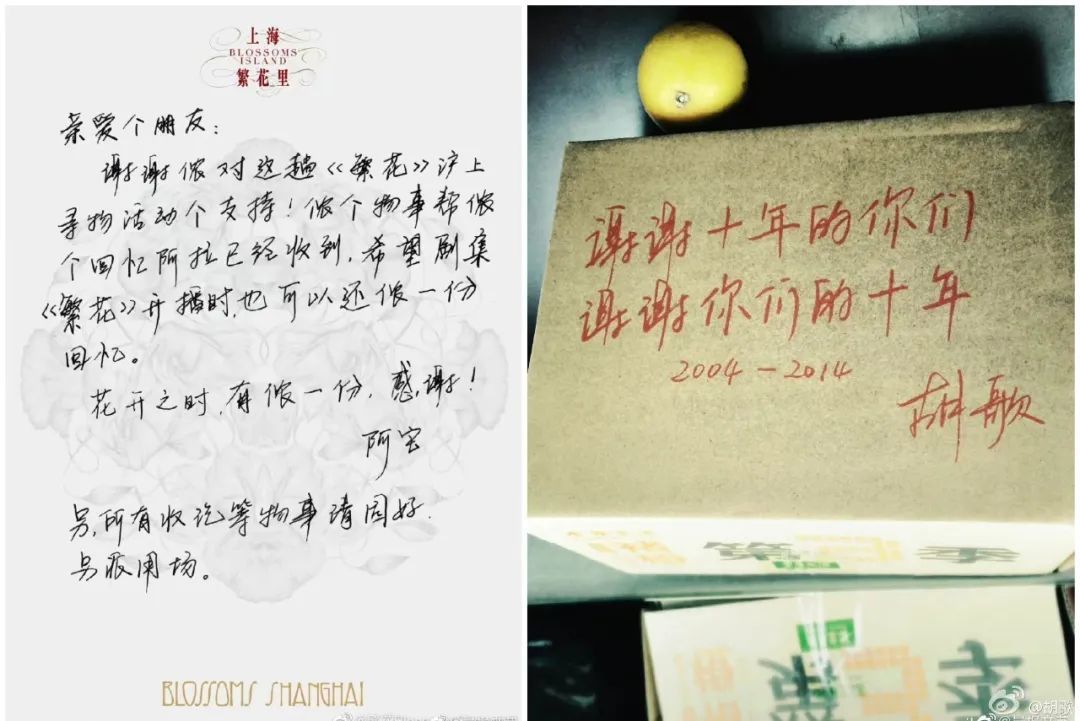 上海
BLOSSOMS
ISLAND
繁花里
亲爱个朋友：
谢谢侬对这趟《繁花》沪上
寻物活动个支持！侬个物事帮侬
个回忆阿拉已经收到，希望剧集
《繁花》开播时，也可以还侬一份
回忆。
花开之时，有侬一份，感谢！
阿宝
另，所有收讫等物事请园好.
另派用场。
BLOSSOMS SHANGHAI
谢谢十年的你们
谢谢你们的十年
2004-2014
胡歌
第四季
@胡歌